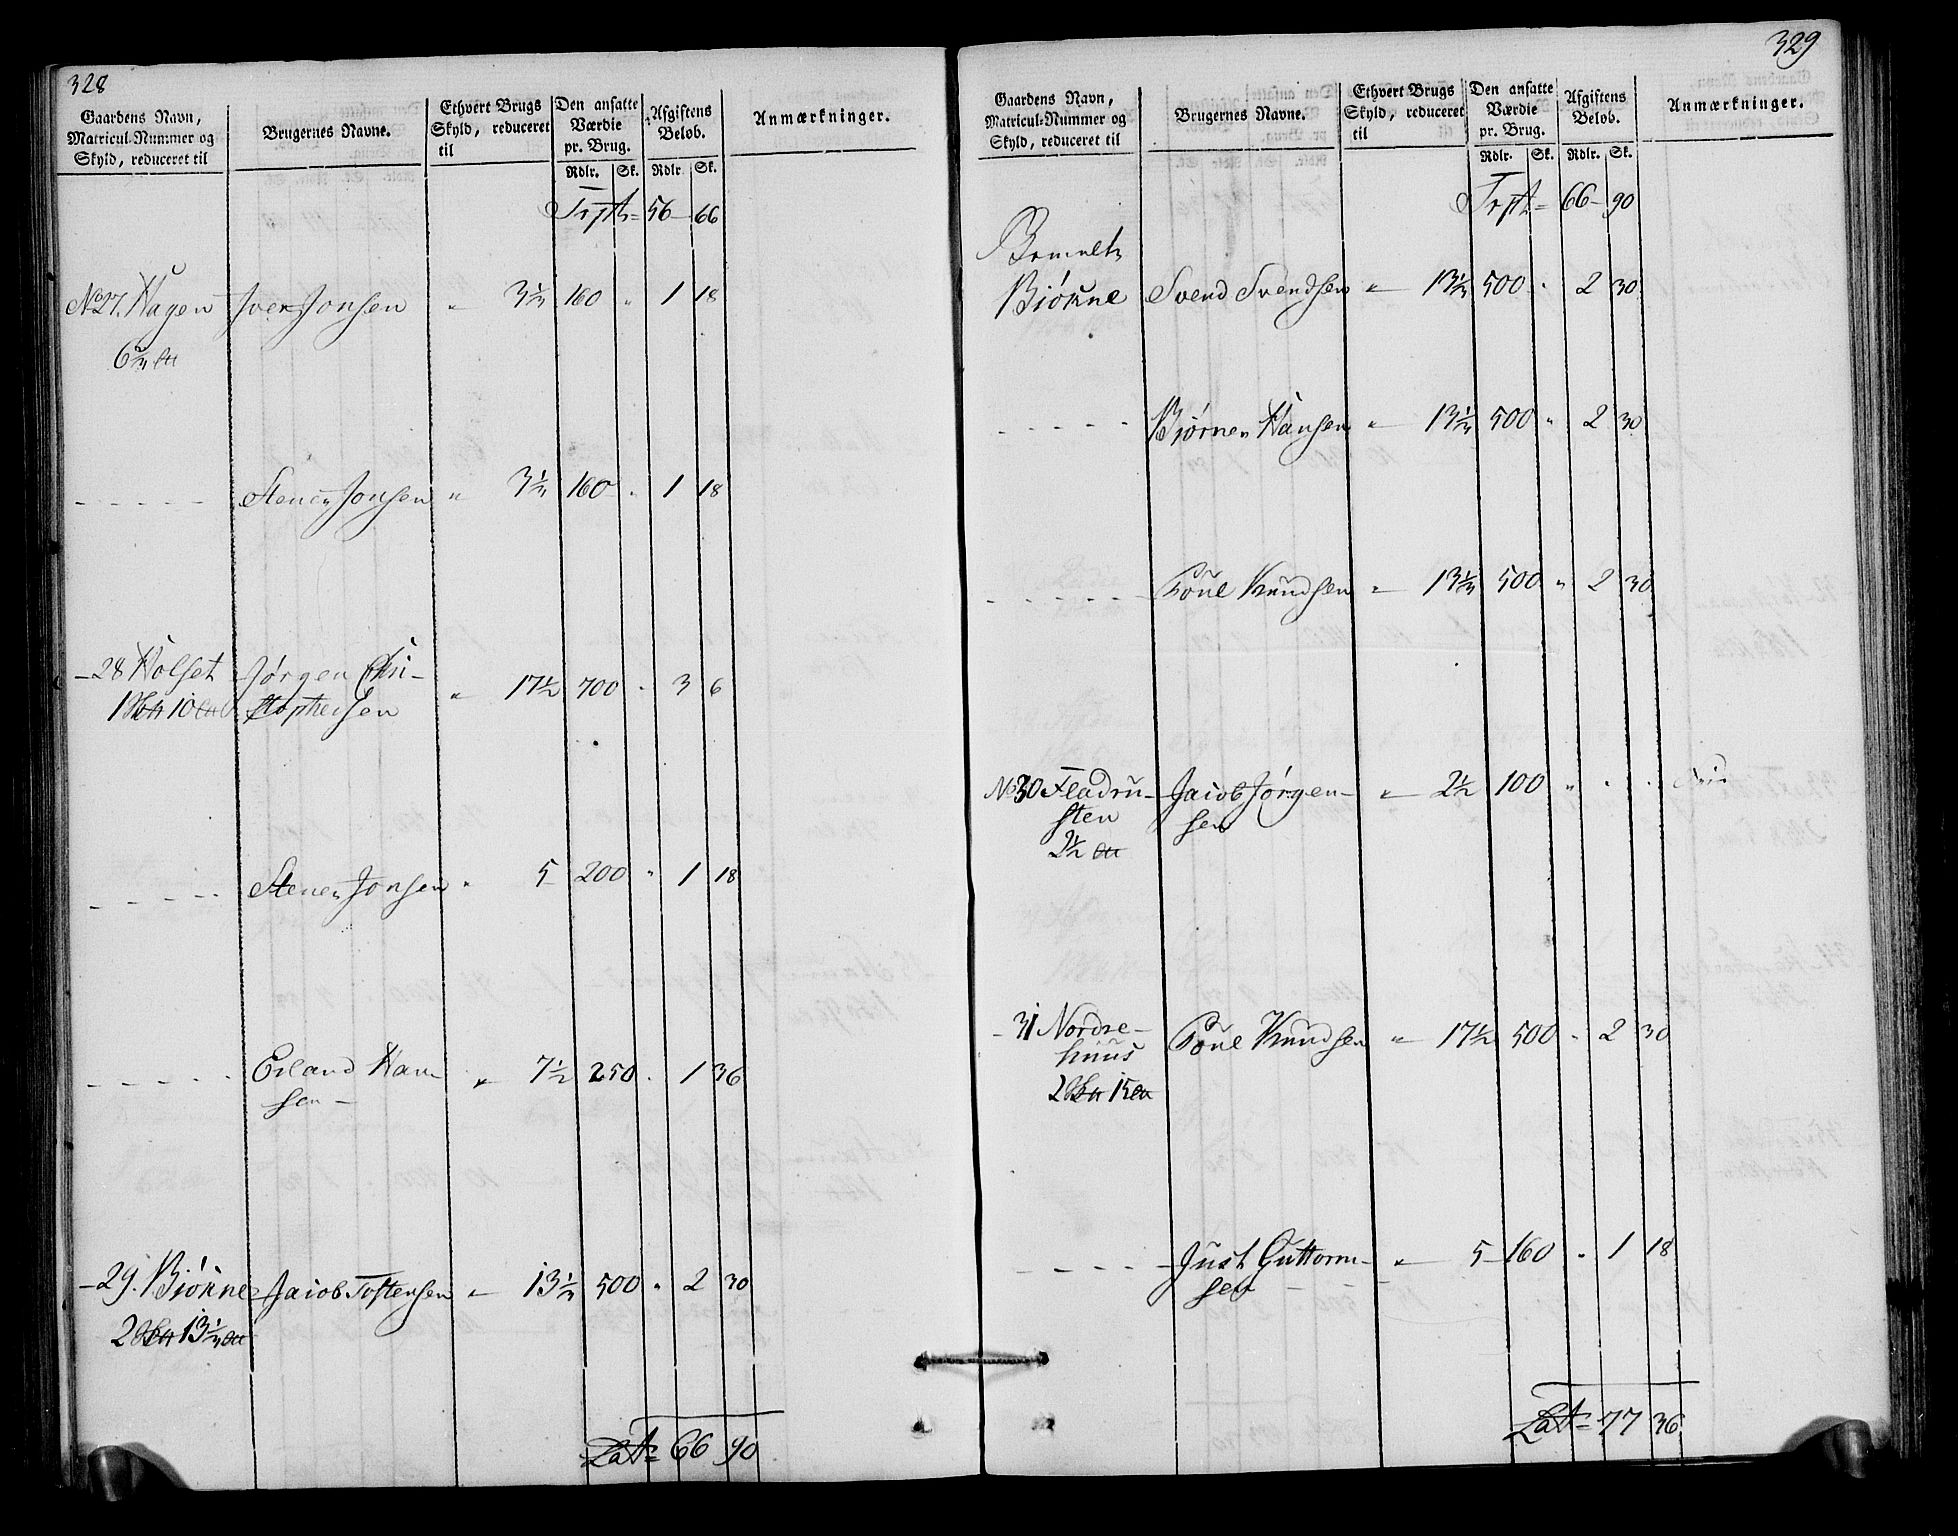 328
Gaardens Navn,
Matricul-Nummer og
Skyld, reduceret til
Brugernes Navne.
Ethvert Brugs
Skyld, reduceret
til
Den ansatte
Værdie
pr. Brug.
Afgiftens
Beløb.
Anmærkninger.
Rdlr. Sk. Rdlr. Sk.
Trpt= 56 66
No 27. Hagen Iver Jonsen " 3⅓ 160 " 1 18
6⅔
- - - - - Stener Jonsen " 3⅓ 160 " 1 18
- 28 Holset Jørgen Chri-
1 10 stophersen " 17½ 700 " 3 6
- - - - Stener Jonsen " 5 200 " 1 18
- - - - - Erland Han-
sen - " 7½ 250 " 1 36
- 29. Biørne Jacob Tostensen " 13⅓ 500 " 2 30
2 13⅓
Lat= 66 90
329
Gaardens Navn,
Matricul-Nummer og
Skyld, reduceret til
Brugernes Navne.
Ethvert Brugs
Skyld, reduceret
til
Den ansatte
Værdie
pr. Brug.
Afgiftens
Beløb.
Anmærkninger.
Rdlr. Sk. Rdlr. Sk.
Trpt= 66 90
Biørne Svend Svendsen " 13⅓ 500 " 2 30
- - - - - Biørner Hansen " 13⅓ 500 " 2 30
- - - - - Poul Knudsen " 13⅓ 500 " 2 30
No 30 Fladru- Jacob Jørgen- " 2½ 100 " " "
sten sen
2½
- 31 Nordre- Poul Knudsen " 17½ 500 " 2 30
huus
2 15
- - - - - Just Guttorm- " 5 160 " 1 18
sen -
Lat= 77 36